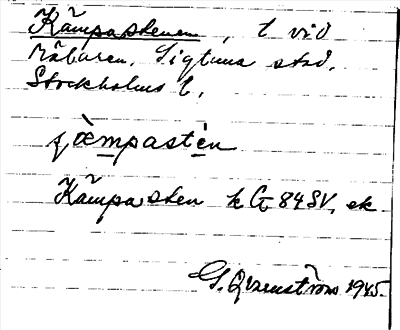 Kämpastenen, t vid
Mälaren, Sigtuna stad,
Stockholms l,
çèmpastén
Kämpasten k G 84 SV, ek
G. Qvarnström 1945.